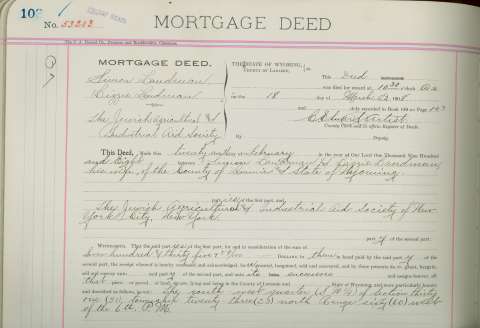 108
No. 53212
MORTGAGE DEED
MORTGAGE DEED.
Simon Landman
Lizzie Landman
TO
The Jewish Agricultural &
Industrial Aid Society
THE STATE OF WYOMING,
COUNTY OF LARAMIE, ss.
This Deed
was filed for record at 10:30 o'clock A.M.
on the 18 day of March 1908
and duly recorded in Book 109 on Page
County Clerk and Ex-officio Register of Deeds.
By Deputy.
This Deed, Made this twenty day of February in the year of Our Lord One Thousand Nine Hundred
and Eight between Simon Landman & Lizzie Landman,
his wife, of the County of Laramie & State of Wyoming
part ies of the first part, and
The Jewish Agricultural & Industrial Aid Society of New
York City, New York
part y of the second part.
WITNESSETH, That the said part ies of the first part, for and in consideration of the sum of
hundred & thirty five & no/100 DOLLARS to them in hand paid by the said part y of the
second part, the receipt whereof is hereby confessed and acknowledged, granted, bargained, sold and conveyed, and by these presents do grant, bargain,
sell and convey unto said part y of the second part, and unto its successors and assigns forever, all
that piece or parcel of land, situate, lying and being in the County of Laramie and State of Wyoming, and more particularly known
and described as follows, to-wit: The south west quarter (S.W.¼) of Section thirty
one (31) township twenty three (23) north Range sixty (60) west
of the 6th P.M.